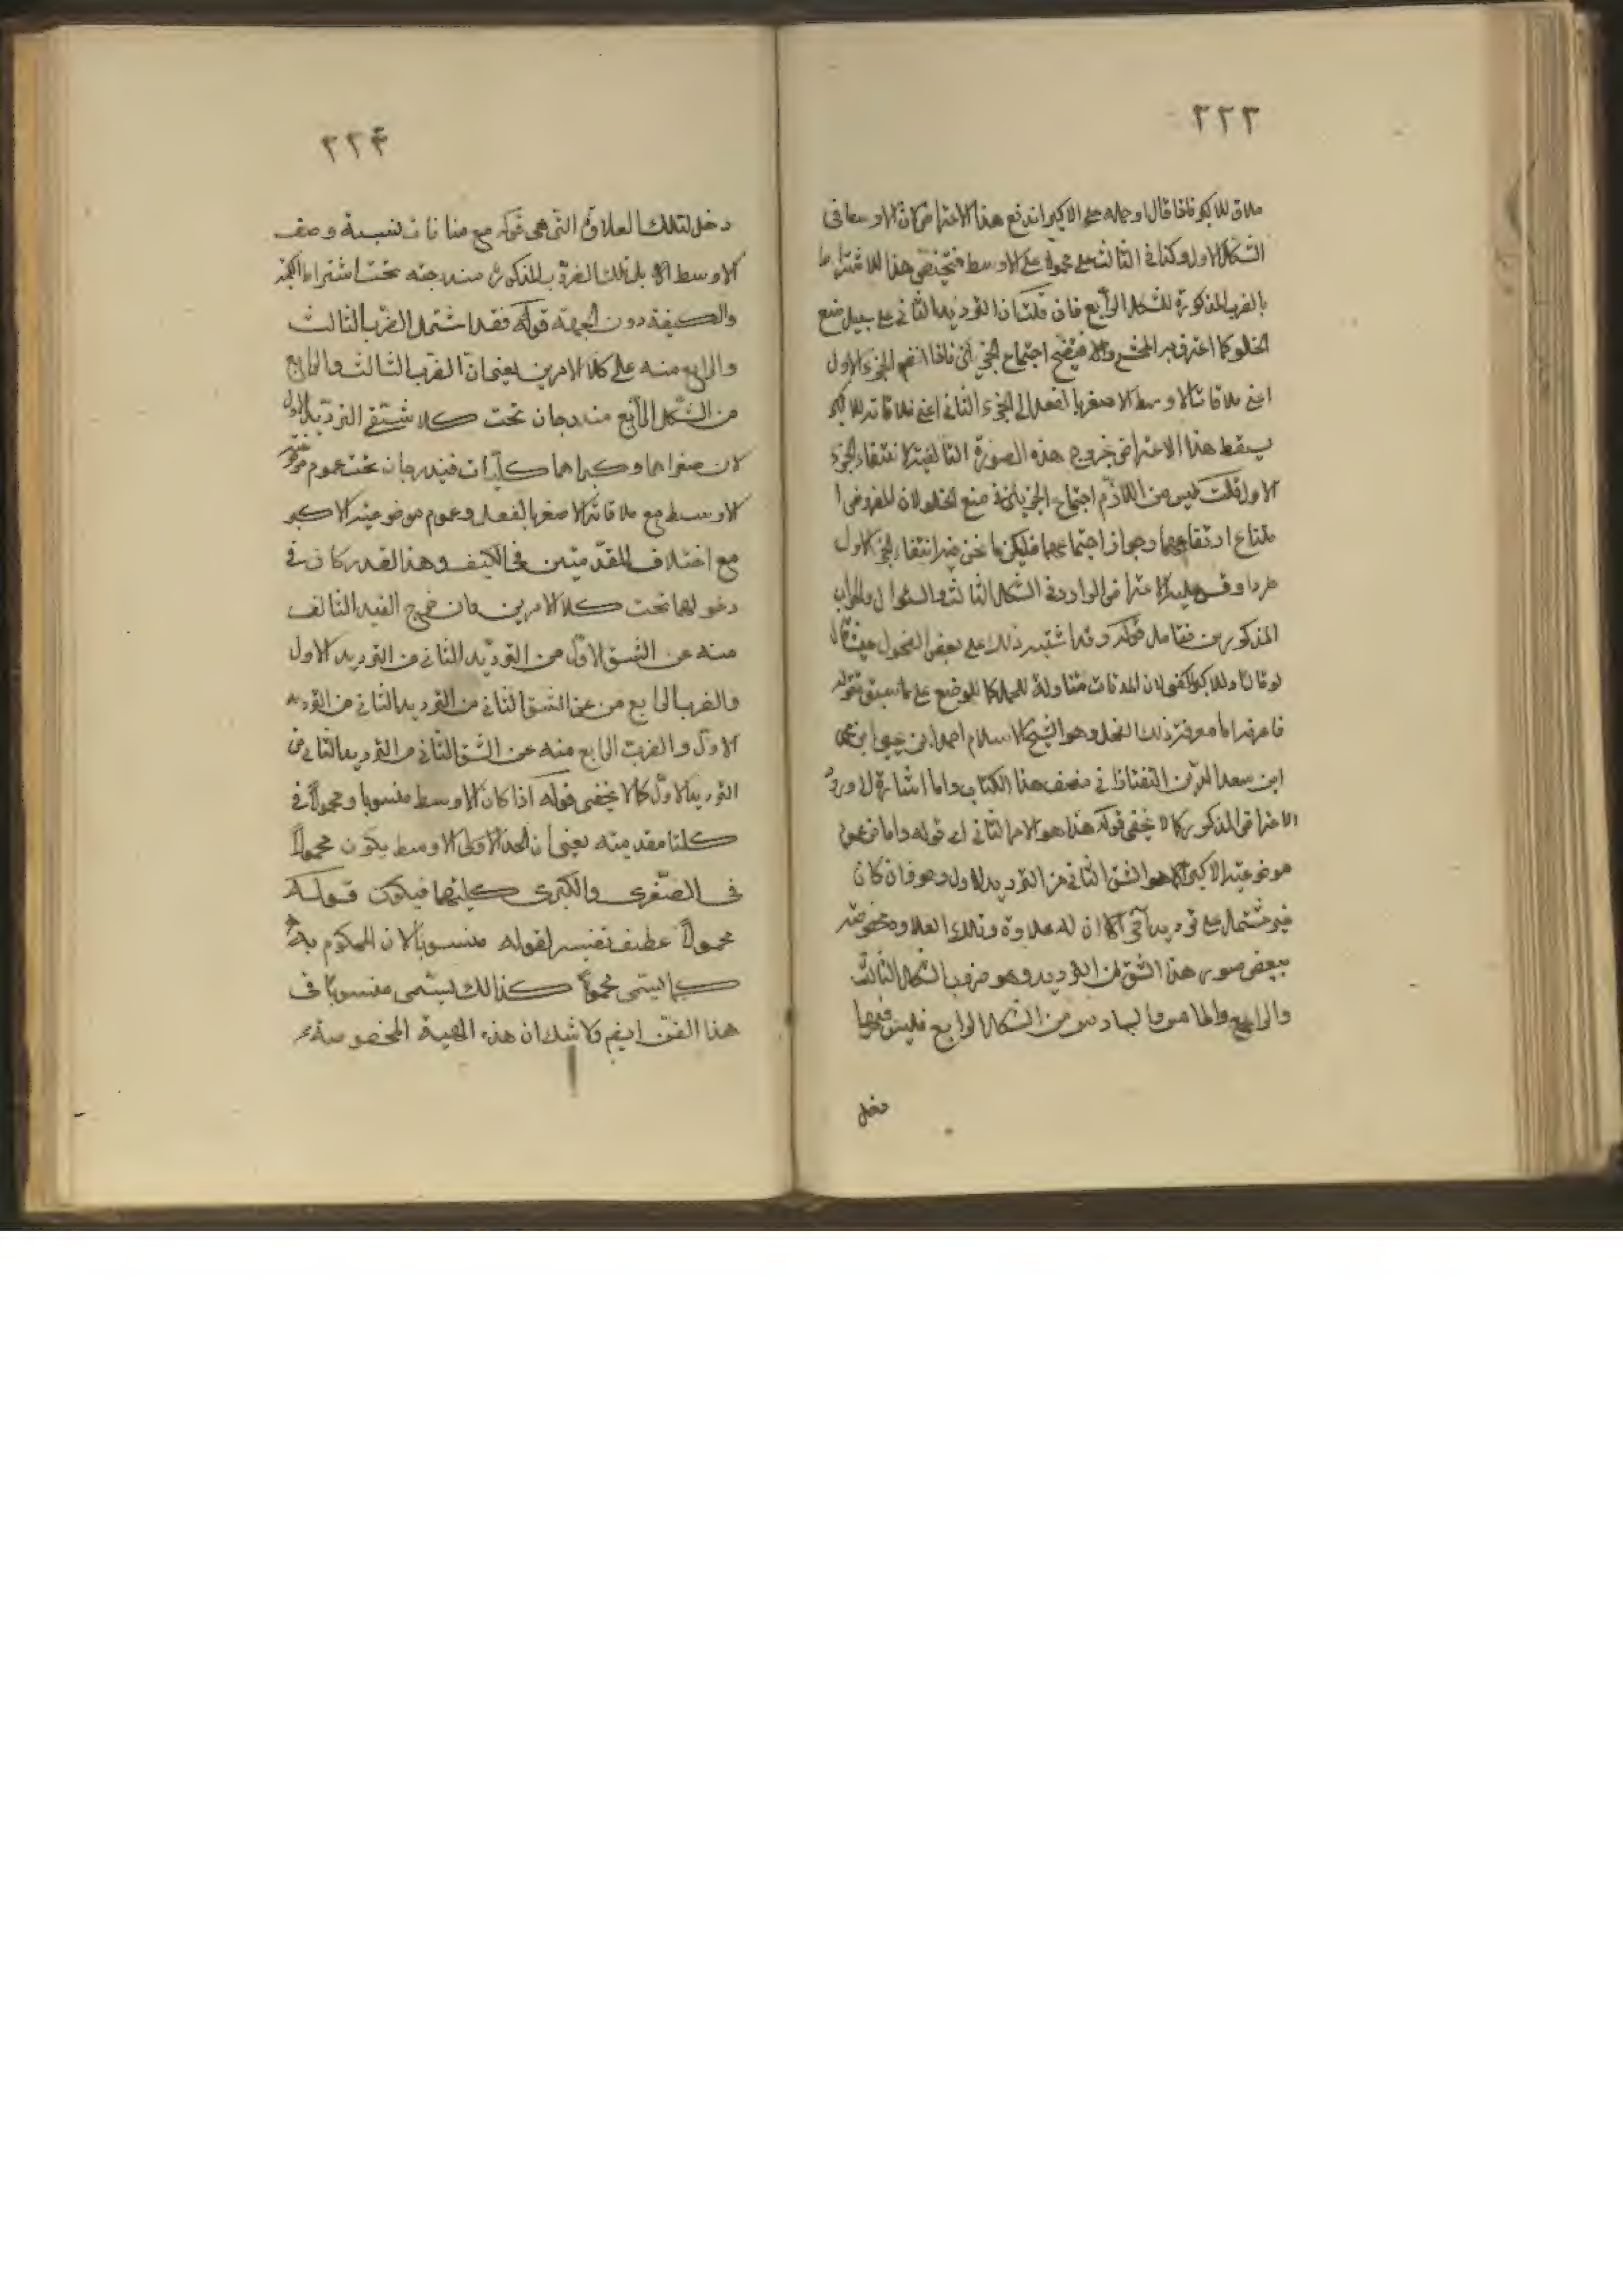 ٢٢٣
ملاق للاكبر فاذا قال او حمله على الاكبر اندفع هذا الاعتراض كان الاوسط في
الشكل الاول وكذا في الثالث على محمولا على الاوسط فيختص هذا الاشتراط
بالضرب المذكورة للشكل الرابع فان قلت ان الترديد الثاني على سبيل منع
الخلو كما اعترف به المحشي والا فيتضح اجتماع الجزئين فاذا انضم الجزء الاول
اعني ملاقات الاوسط للاصغر بالفعل الى الجزء الثاني اعني ملاقاته للاكبر
يسقط هذا الاعتراض بخروج هذه الصورة التاليفية لانتفاء الجزء
الاول قلت ليس من اللازم اجتماع الجزئين في منع الخلو لان المفروض ا
متناع ارتفاعهما وجواز اجتماعهما فليكن ما نحن فيه انتفاء الجزء الاول
الاعتراض الوارد في الشكل الثالث والسؤال والجواب
المذكورين فتامل قوله وقد اشتبه ذلك على بعض الفحول حيث قال
لو قال او للاكبر لكفى لان الملاقات متناولة للحمل كما للوضع على ما سبق قوله
فاعرفه اما معرفة ذلك الفحل وهو الشيخ الاسلام احمد ابن يحيى ابن محمد
ابن سعد الدين التفتازاني مصنف هذا الكتاب واما اشارة لا ورود
الاعتراض المذكور كما لا يخفى قوله هذا هو الامر الثاني اي قوله واما من عموم
موضوعية الاكبر الخ هو الشق الثاني من الترديد الاول وهو فان كان
غير مشتمل على ترديد آخر الا ان له علاوة وتلك العلاوة مختصة
ببعض صور هذا الشق من الترديد وهو ضروب الشكل الثاني
والرابع والخامس والسادس من الشكل الرابع فليس فيها
دخل
٢٢۴
دخل لتلك العلاوة التي هي قوله مع منافات نسبة وصف
الاوسط الخ بل تلك الضروب المذكورة مندرجته تحت اشتراط الكمية
والكيفية دون الجهة قوله فقد اشتمل الضرب الثالث
والرابع منه على كلا الامرين يعني ان الضرب الثالث والرابع
من الشكل الرابع مندرجان تحت كلا شقي الترديد الاول
لان صغراهما وكبراهما كليات فيندرجان تحت عموم موضوعية
الاوسط مع ملاقاته للاصغر بالفعل وعموم موضوعية الاكبر
مع اختلاف المقدمتين في الكيف وهذا القدر كاف في
دخولهما تحت كلا الامرين وان خرج الضرب الثالث
منه عن الشق الاول من الترديد الثاني من الترديد الاول
والضرب الرابع من عن الشق الثاني من الترديد الثاني من الترديد
الاول والضرب الرابع منه عن الشق الثاني من الترديد الثاني من
الترديد الاول كما لا يخفى قوله اذا كان الاوسط منسوبا ومحمولا في
كلتا مقدمته يعني ان الحد الاوسط يكون محمولا
في الصغرى والكبرى كليهما فيكون قوله
محمولا عطف تفسير لقوله منسوبا لان المحكوم به
كما يسمى محمولا كذالك يسمى منسوبا في
هذا الفن ايضا ولا شك ان هذه الهيئة المخصوصة